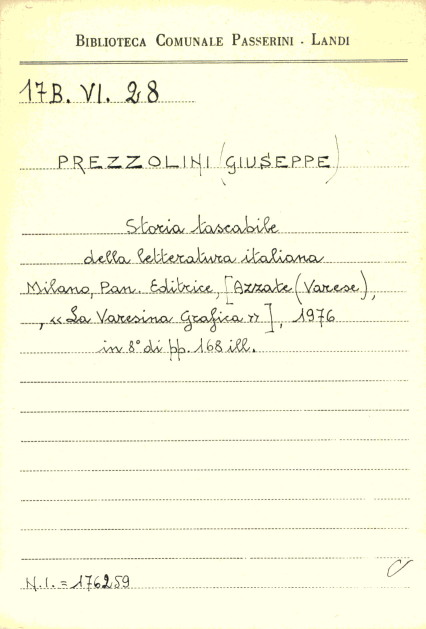 BIBLIOTECA COMUNALE PASSERINI - LANDI
17B. VI. 28
PREZZOLINI (GIUSEPPE)
Storia tascabile
della letteratura italiana
Milano, Pan. Editrice, [Azzate (Varese),
, «La Varesina Grafica»], 1976
in 8° di pp. 168 ill.
N.I. = 176259